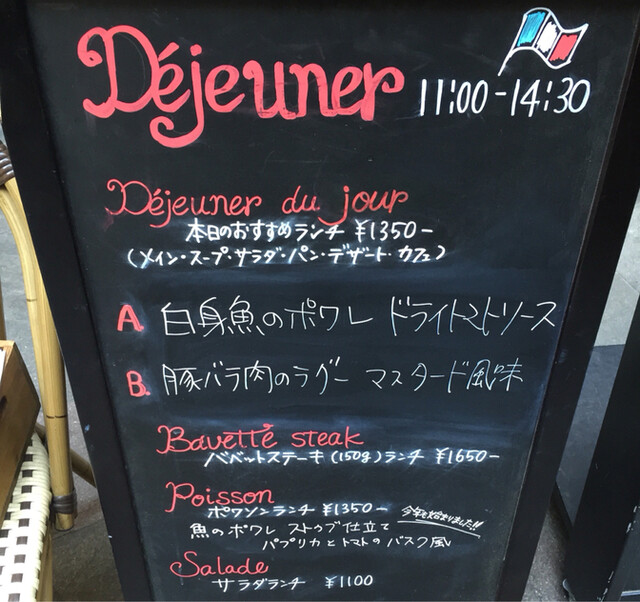 Déjeuner 11:00-14:30
Déjeuner du jour
本日のおすすめランチ ¥1350-
(メイン・スープ・サラダ・パン・デザート・カフェ)
A. 白身魚のポワレ ドライトマトソース
B. 豚バラ肉のラグー マスタード風味
Bavette steak
バベットステーキ(150g)ランチ ¥1650-
Poisson
ポワソンランチ ¥1350-
今年も始まりました!!
魚のポワレ ストウブ仕立て
パプリカとトマトのバスク風
Salade
サラダランチ ¥1100